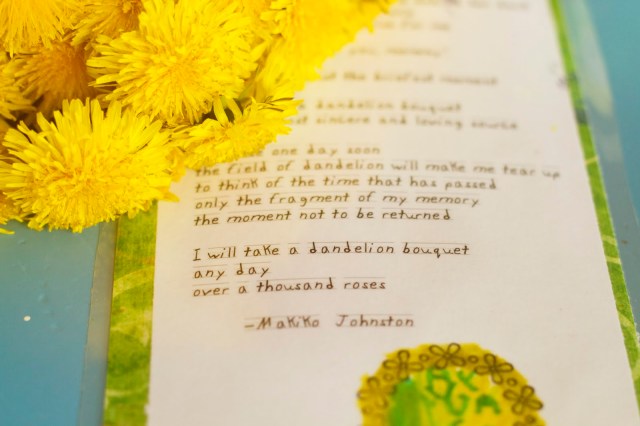 but the briefest moment
dandelion bouquet
sincere and loving source
one day soon
the field of dandelion will make me tear up
to think of the time that has passed
only the fragment of my memory
the moment not to be returned
I will take a dandelion bouquet
any day
over a thousand roses
-Makiko Johnston